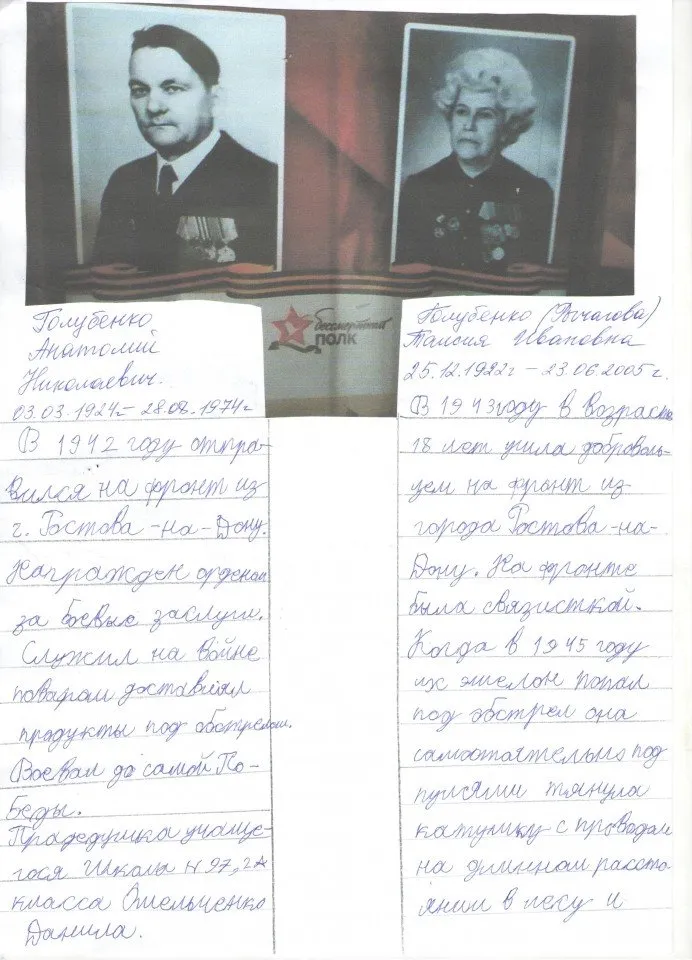 Голубенко
Анатолий
Николаевич.
03.03.1924г – 28.08.1974г
В 1942 году отпра-
вился на фронт из
г. Ростова-на-Дону.
Награжден орденом
за боевые заслуги.
Служил на войне
поваром доставлял
продукты под обстрелом.
Воевал до самой По-
беды.
Прадедушка учаще-
гося Школы №97, 2А
класса Омельченко
Данила.
бессмертный
ПОЛК
Голубенко (Рычагова)
Таисия Ивановна
25.12.1922г – 23.06.2005г.
В 1943году в возрасте
18 лет ушла доброволь-
цем на фронт из
города Ростова-на-
Дону. На фронте
была связисткой.
Когда в 1945 году
их эшелон попал
под обстрел она
самостоятельно под
пулями тянула
катушку с проводом
на длинном рассто
янии в лесу и